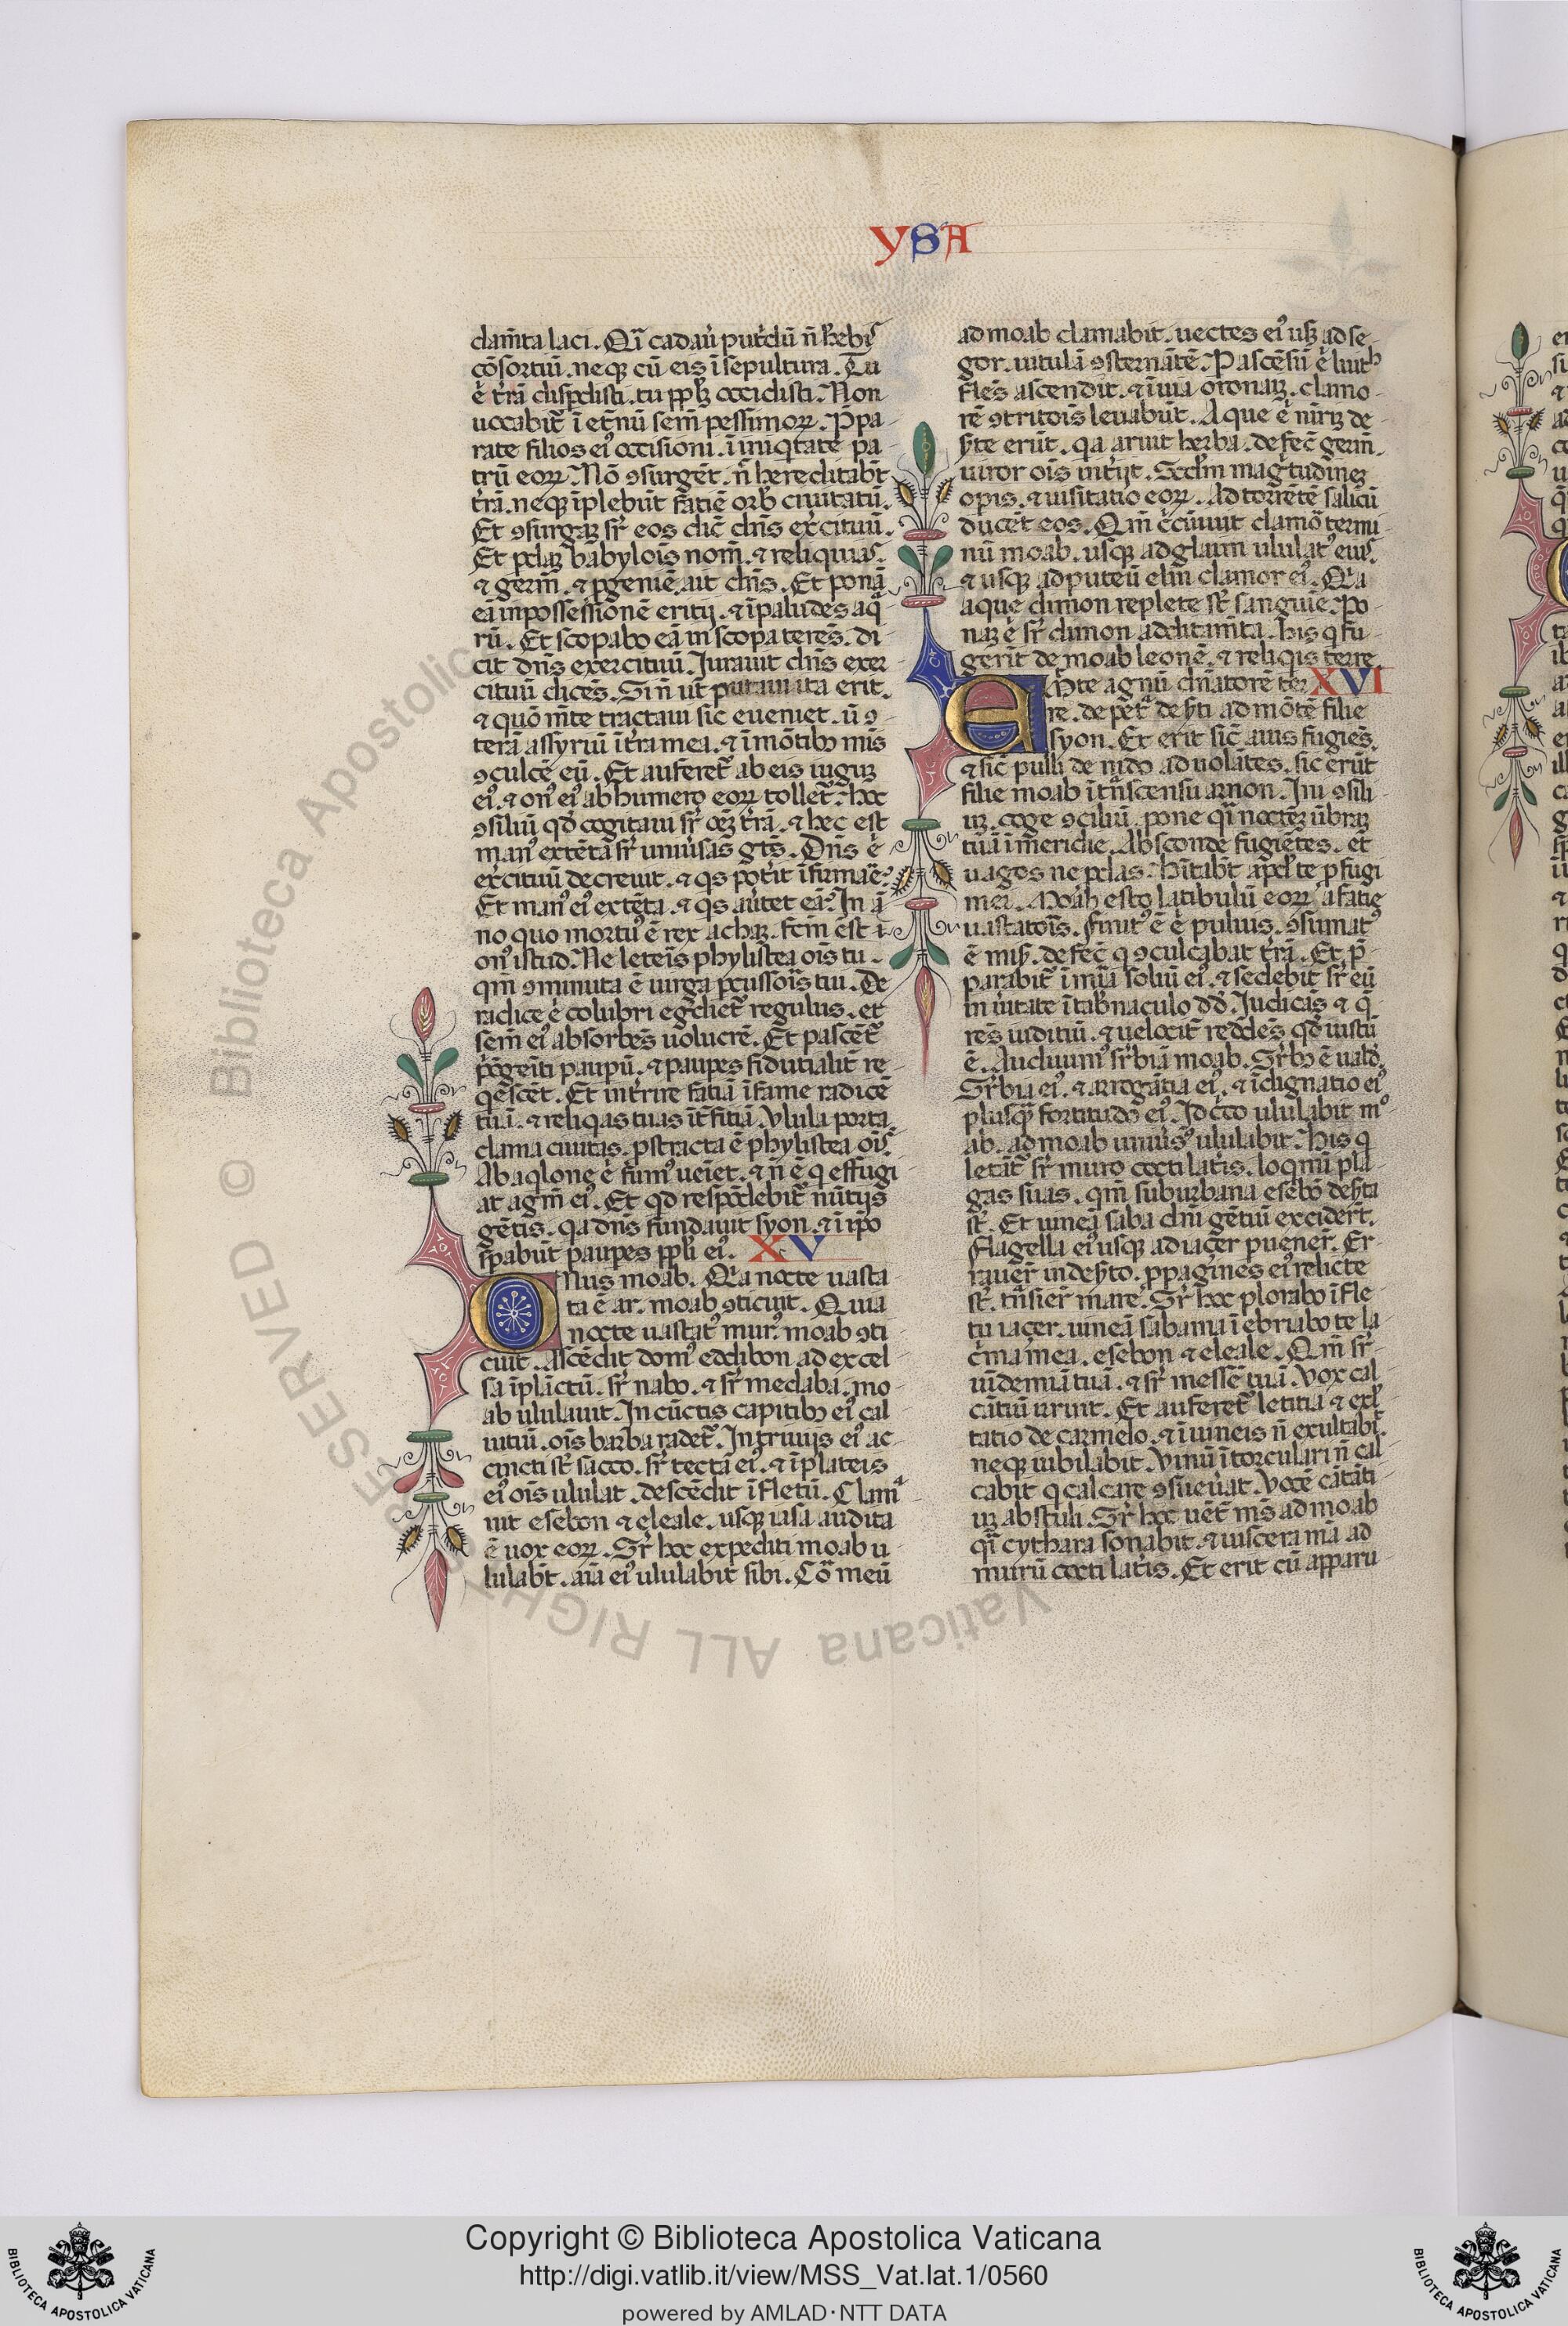 YSA
dam̄ta laci. Qi̅ cadau̾ putͥdū n̄ hēbis
cōsortiū. neqꝫ cū eis ī sepultura. Tu
ē tr̄ā disp̱disti. tu ppl̄ꝫ occidisti. Non
uocabit̄ ī et̾nū sem̄ pessimoꝝ. P̄pa-
rate filios eiꝰ occisioni. ī iniqͥtate pa-
trū eoꝝ. Nō ꝯsurgēt. n̄ hereditabt̄
tr̄ā. neqꝫ īplebūt fatiē orb̄ ciuitatū.
Et ꝯsurgaꝫ sr̄ eos dic̄ dn̄s ex̾cituū.
Et p̱daꝫ babylois̄ nom̄. ⁊ reliquias.
⁊ germ̄. ⁊ ꝓgeniē ait dn̄s. Et ponā
eā in possessionē eritij. ⁊ ī paludes aqͣ
rū. Et scopabo eā in scopa teres̄. di-
cit dn̄s exercituū. Jurauit dn̄s exer
cituū dices̄. Si n̄ ut putaui ita erit.
⁊ quō m̄te tractaui sic eueniet. ū ꝯ-
terā assyriū ī tr̄a mea. ⁊ ī mōtibꝰ mīs
ꝯculcē eū. Et auferet̄ ab eis iuguꝫ
eiꝰ. ⁊ onꝰ eiꝰ ab humero eoꝝ tollet̄. hoc
ꝯsiliū qd̄ cogitaui sr̄ oēꝫ tr̄ā. ⁊ hec est
manꝰ extēta sr̄ uniu̾sas gt̄s. Dn̄s ē
ex̾cituū decreuit. ⁊ qͥs pot̾it īfirmaē?
Et manꝰ eiꝰ extēta. ⁊ qͥs au̾tet eā? In ā
no quo mortuꝰ ē rex achaꝫ. fcm̄ est i
onꝰ istud. Ne leteis̄ phylistea ois̄ tu.
qm̄ ꝯminuta ē uirga p̱cussoris̄ tui. De
radice ē colubri eg̾diet̄ regulus. et
sem̄ eiꝰ absorbēs uolucrē. Et pascēt̄
p̾ogeīti paup̱ū. ⁊ paup̱es fidutialit̄ re-
qͥescēt. Et int̾rire fatiā ī fame radicē
tuā. ⁊ reliqͥas tuas īt̾fitiā. Vlula porta.
clama ciuitas. ꝓstracta ē phylistea ois̄.
Ab aqͥlone ē fumꝰ ueiēt. ⁊ n̄ ē qͥ effugi
at agm̄ eiꝰ. Et qͥd respōdebit̄ nūtijs
gētis. qͥa dn̄s fundauit syon. ⁊ ī ip̄o
sp̱abūt paup̱es ppl̄i eiꝰ. XV
Onus moab. Qͥa nocte uasta-
ta ē ar. moab ꝯticuit. Quia
nocte uastatꝰ murꝰ moab ꝯti-
cuit. Ascēdit domꝰ ⁊ dibon ad excel-
sa ī plāctū. sr̄ nabo. ⁊ sr̄ medaba. mo-
ab ululauit. In cūctis capitibꝰ eiꝰ cal
uitiū. ois̄ barba radet̄. In triuijs eiꝰ ac-
cincti st̄ sacco. sr̄ tecta eiꝰ. ⁊ ī plateis
eiꝰ ois̄ ululat. descēdit ī fletū. Clamͣ
uit esebon ⁊ eleale. usqꝫ iasa audita
ē uox eoꝝ. Sr̄ hoc expediti moab u-
lulabt̄. aīa eiꝰ ululabit sibi. Cō meū
ad moab clamabit. uectes eiꝰ usqꝫ ad se-
gor. uitulā ꝯsternātē. P ascēsū ē luith
fles̄ ascendit. ⁊ ī uia oronaiꝫ. clamo-
rē ꝯtritois̄ leuabūt. Aque ē nīrīꝫ de-
s̾te erūt. qͥa aruit herba. defec̄ germ̄.
uiror ois̄ int̾ijt. Scd̄m mag̾tudineꝫ
opis. ⁊ uisitatio eoꝝ. Ad torrētē salicū
ducēt eos. Qm̄ c̾cūiuit clamō termi-
nū moab. usqꝫ ad glaim ululatꝰ eius.
⁊ usqꝫ ad puteū elim clamor eiꝰ. Qͥa
aque dimon replete st̄ sanguīe. Po-
naꝫ ē sr̄ dimon additam̄ta. his qͥ fu-
gerīt de moab leonē. ⁊ reliqͥis terre.
Emi̅te agnū dn̄atorē terͣ XVI
re. de petͣ des̾ti ad mōtē filie
syon. Et erit sic̄ auis fugies̄.
⁊ sic̄ pulli de nido aduolātes. sic erūt
filie moab ī tn̄scensu arnon. Ini ꝯsili
uꝫ. coge ꝯciliū. pone qͣi̅ nocteꝫ ūbraꝫ
tuā ī meridie. Absconde fugiētes. et
uagos ne p̱das. Hītabt̄ apd̄ te ꝓfugi
mei. Moab esto latibulū eoꝝ a fatie
uastatois̄. Finitꝰ ē ē puluis. ꝯsumatꝰ
ē mis̄. defec̄ qͥ ꝯculcabat tr̄ā. Et p̄-
parabit̄ ī mīa soliū eiꝰ. ⁊ sedebit sr̄ eū
in u̾itate ī tab̾naculo dd̄. Judicās ⁊ qͣ-
res̄ iuditiū. ⁊ uelocit̄ reddes̄ qd̄ iustū
ē. Audiuimꝰ sr̄biā moab. Sr̄bꝰ ē uald̄.
Sr̄bia eiꝰ. ⁊ arrogātia eiꝰ. ⁊ īdignatio eiꝰ
plusqͣ fortitudo eiꝰ. Idc̾co ululabit mo-
ab. ad moab uniu̾sꝰ ululabit. His qͥ
letāt̄ sr̄ muro cocti lat̾is. loqͥmī pla-
gas suas. qm̄ suburbana esebō des̾ta
st̄. Et uineā saba dn̄i gētiū excidert̄.
Flagella eiꝰ usqꝫ ad iaçer puener̄. Er-
rauer̄ in des̾to. ꝓpagines eiꝰ relicte
st̄. tn̄sier̄ mare. Sr̄ hoc plorabo ī fle-
tu iaçer. uineā sabama ī ebriabo te la-
c̾ma mea. esebon ⁊ eleale. Qm̄ sr̄
uīdemiā tuā. ⁊ sr̄ messē tuā. vox cal
cātiū irruit. Et auferet̄ letitia ⁊ exl̾
tatio de carmelo. ⁊ ī uineis n̄ exultabit̄.
neqꝫ iubilabit. Vinū ī torculari n̄ cal
cabit qͥ calcare ꝯsueu̾at. Vocē cātāti-
uꝫ abstuli. Sr̄ hoc uēt̄ ms̄ ad moab
qͣi̅ cythara sonabit. ⁊ uiscera mā ad
murū cocti lat̾is. Et erit cū apparu-
Copyright © Biblioteca Apostolica Vaticana
http://digi.vatlib.it/view/MSS_Vat.lat.1/0560
powered by AMLAD·NTT DATA
BIBLIOTECA APOSTOLICA VATICANA
BIBLIOTECA APOSTOLICA VATICANA
© Biblioteca Apostolica Vaticana ALL RIGHTS RESERVED